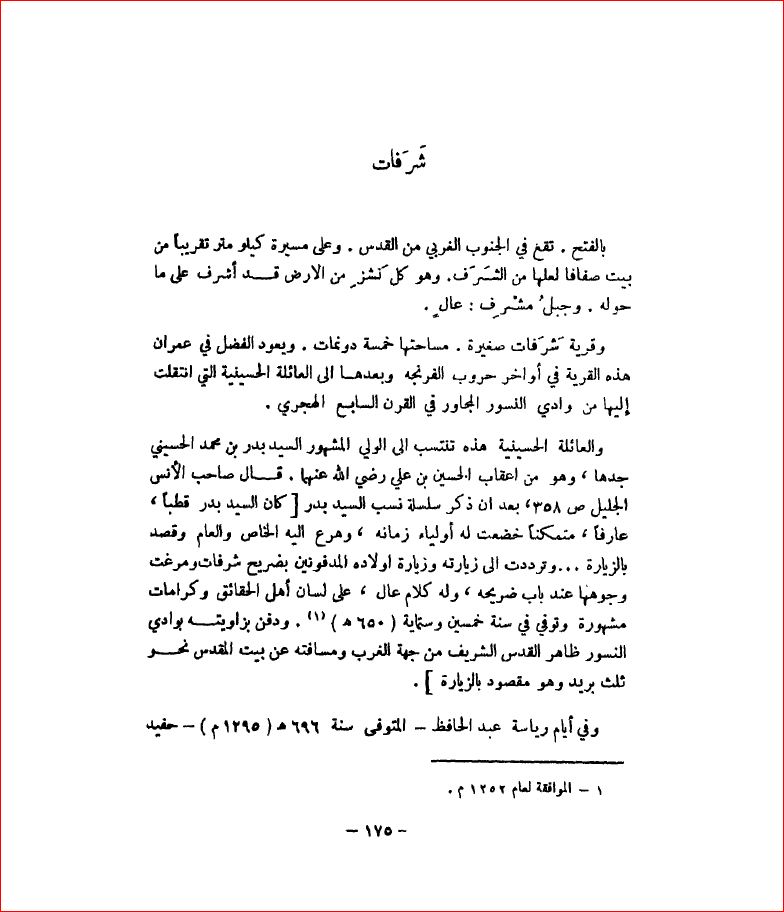 شَرَفات
بالفتح . تقع في الجنوب الغربي من القدس . وعلى مسيرة كيلو متر تقريباً من
بيت صفافا لعلها من الشَرَف. وهو كل نَشز ٍ من الارض قـــد أشرف على ما
حوله . وجبلُ مشْرِف : عالٍ .
وقرية شَرَفات صغيرة . مساحتها خمسة دونمات . ويعود الفضل في عمران
هذه القرية في أواخر حروب الفرنجه وبعدهـا الى العائلة الحسينية التي انتقلت
إليها من وادي النسور المجاور في القرن السابع الهجري .
والعائلة الحسينية هذه تنتسب الى الولي المشهور السيد بدر بن محمد الحسيني
جدها ، وهو من اعقاب الحسين بن علي رضي الله عنهما . قـــال صاحب الأنس
الجليل ص ٣٥٨، بعد ان ذكر سلسلة نسب السيد بدر [ كان السيد بدر قطباً ،
عارفاً ، متمكناً خضعت له أولياء زمانه ، وهرع اليه الخاص والعام وقصد
بالزيارة ... وترددت الى زيارته وزيارة اولاده المدفونين بضريح شرفات ومرغت
وجوهها عند باب ضريحه ، وله كلام عال ، على لسان أهل الحقائق وكرامات
مشهورة وتوفي في سنة خمسين وستماية ( ٦٥٠ ه ) (١) . ودفن بزاويتـــه بوادي
النسور ظاهر القدس الشريف من جهة الغرب ومسافته عن بيت المقدس نحـــو
ثلث بريد وهو مقصود بالزيارة ] .
وفي أيام رياسة عبد الحافظ – المتوفى سنة ٦٩٦ ه ( ١٢٩٥ م ) – حفيد
١ – الموافقة لعام ١٢٥٢ م .
– ١٧٥ –